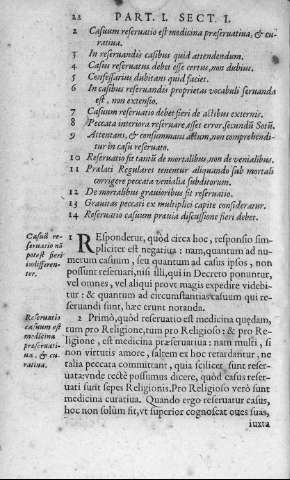 22 PART. I. SECT. I.
2 Casuum reseruatio est medicina præseruatiua, & cu-
ratiua.
3 In reseruandis casibus quid attendendum.
4 Casus reseruatus debet esse certus, non dubius.
5 Confessarius dubitans quid faciet.
6 In casibus reseruandis proprietas vocabuli seruanda
est, non extensio.
7 Casuum reseruatio debet fieri de actibus externis.
8 Peccata interiora reseruare, asset error, secundū Sotū.
9 Attentans, & consummans actum, non comprehendi-
tur in casu reseruato.
10 Reseruatio fit tantū de mortalibus, non de venialibus.
11 Prælati Regulares tenentur aliquando sub mortali
corrigere peccata venialia subditorum.
12 De mortalibus grauioribus fit reseruatio.
13 Grauitas peccati ex multiplici capite consideratur.
14 Reseruatio casuum præuia discussione fieri debet.
Casuū re-
seruatio nō
potest fieri
indifferen-
ter.
1 REspondetur, quòd circa hoc, responsio sim-
pliciter est negatiua: nam, quantum ad nu-
merum casuum, seu quantum ad casus ipsos, non
possunt reseruari, nisi illi, qui in Decreto ponuntur,
vel omnes, vel aliqui prout magis expedire videbi-
tur: & quantum ad circumstantias casuum qui re-
seruandi sunt, hæc erunt notanda.
Reseruatio
casuum est
medicina
præseruati-
ua, & cu-
ratiua.
2 Primò, quòd reseruatio est medicina quędam,
tum pro Religione, tum pro Religioso: & pro Re-
ligione, est medicina præseruatiua: nam multi, si
non virtutis amore, saltem ex hoc retardantur, ne
talia peccata committant, quia scilicet sunt reser-
uata: vnde rectè possumus dicere, quòd casus reser-
uati sunt sepes Religionis. Pro Religioso verò sunt
medicina curatiua. Quando ergo reseruatur casus,
hoc non solùm fit, vt superior cognoscat oues suas,
iuxta